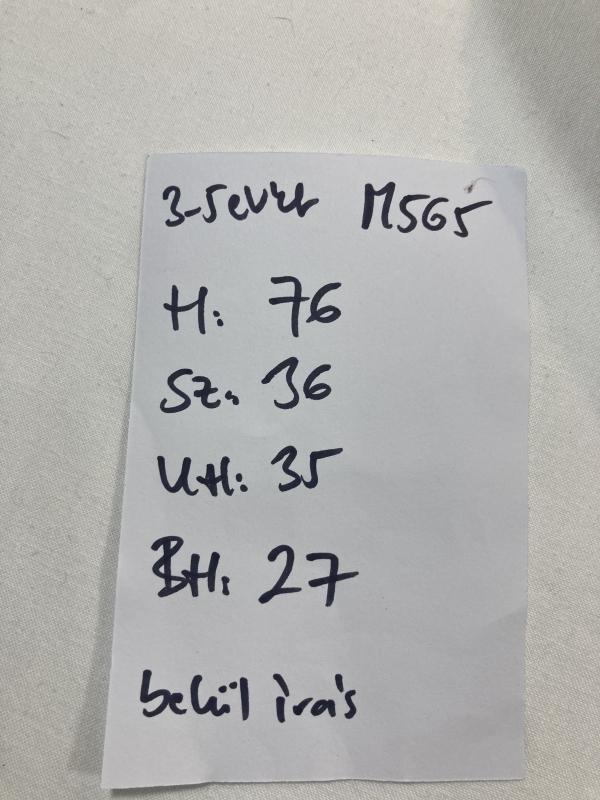 3-5 éves M565
H: 76
Sz. 36
UH: 35
BH: 27
belül írás